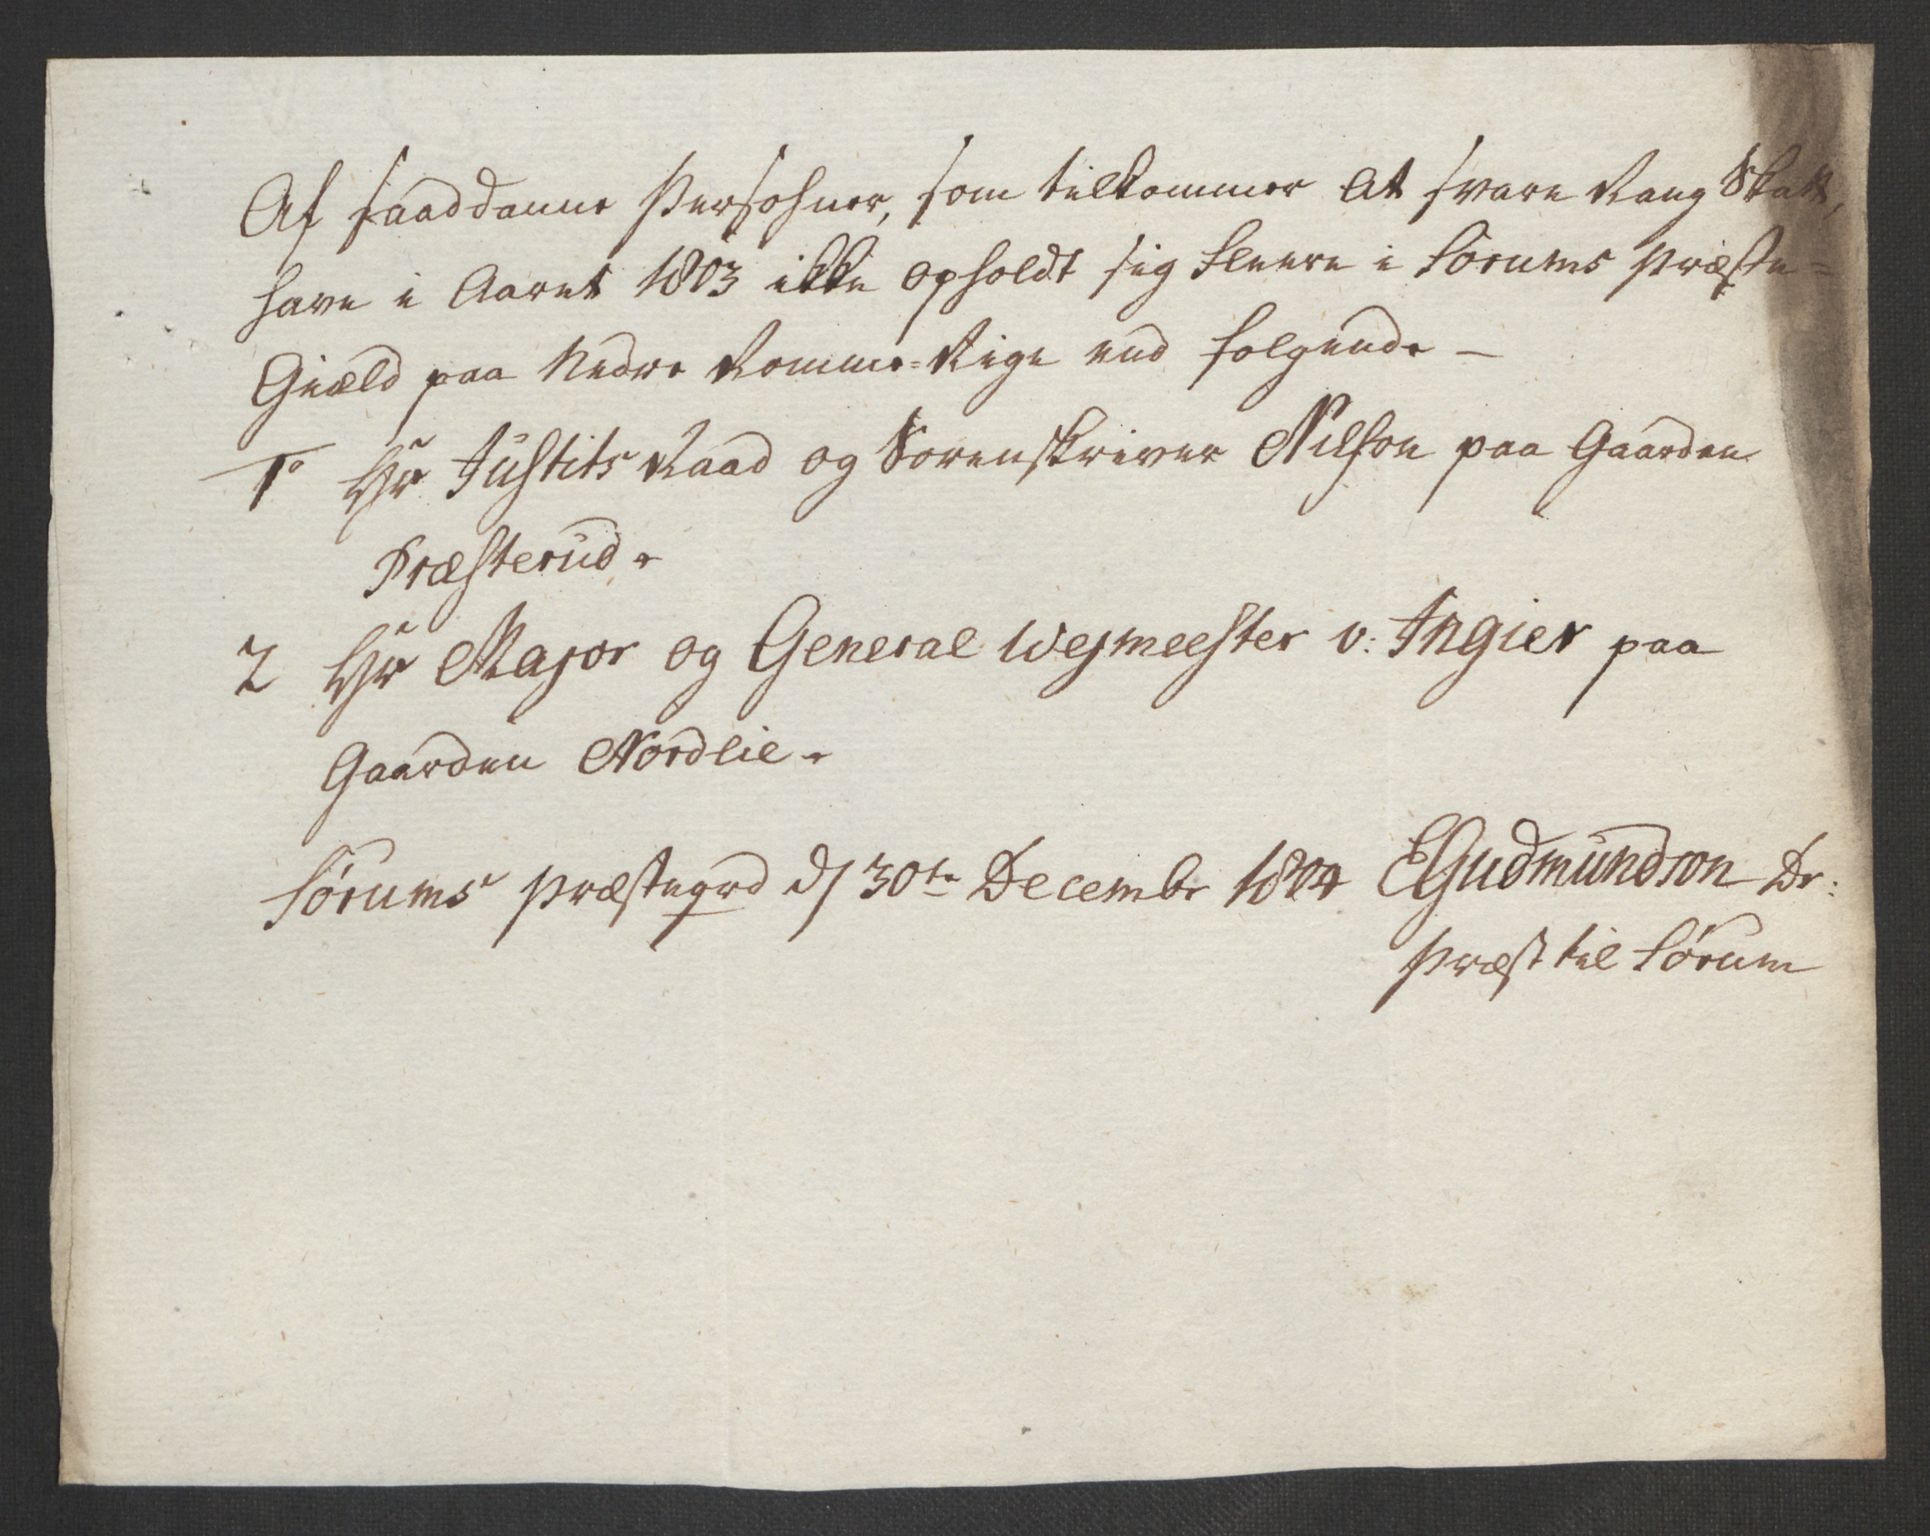 Af saaddanne Persohner, som tilkommer at svare Rang Skatt,
have i Aaret 1803 ikke opholdt sig fleere i Sørums Præste=
Giæld paa Nedre Romme=Rige end følgende —
1° Hr Justits Raad og Sorenskriver Nilson paa Gaarden
Præsterud.
2 Hr Major og General Wejmeester v: Ingier paa
Gaarden Nordlie.
Sørums præstegrd d 30te Decembr 1804 EGudmundson Dr:
Præst til Sørum